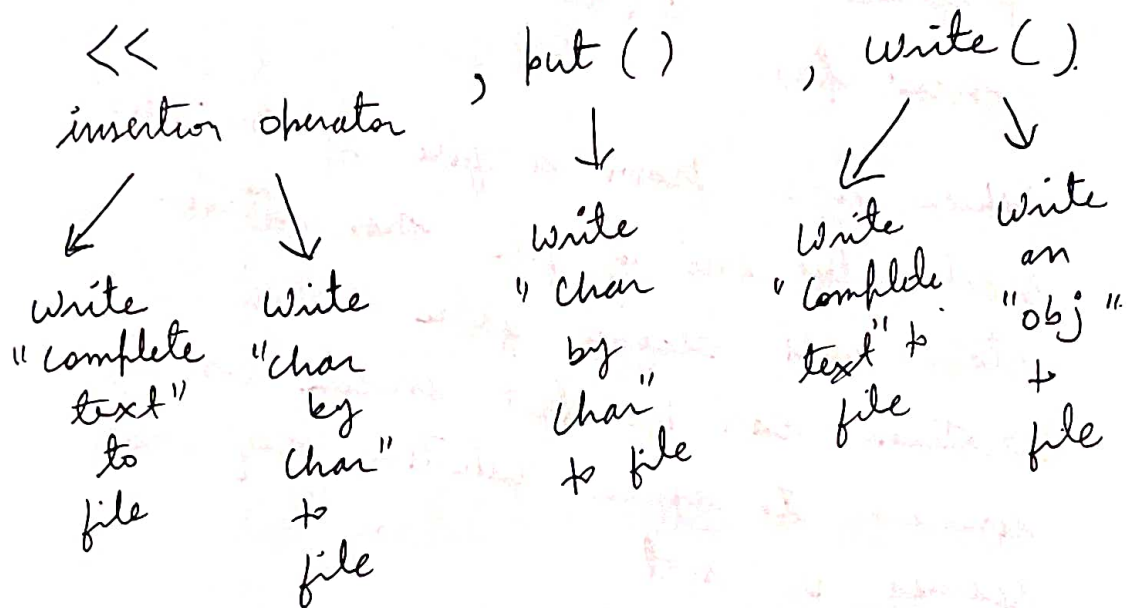 <<
insertion operator
, put ()
, write ().
write
"complete
text"
to
file
write
"char
by
char"
to
file
write
"char
by
char"
to file
write
"complete
text" to
file
write
an
"obj"
to
file